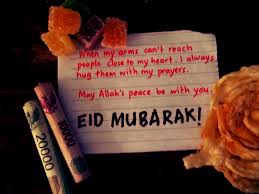 When my arms can't reach
people close to my heart. I always
hug them with my prayers.
May Allah's peace be with you.
EID MUBARAK!
20000
10000